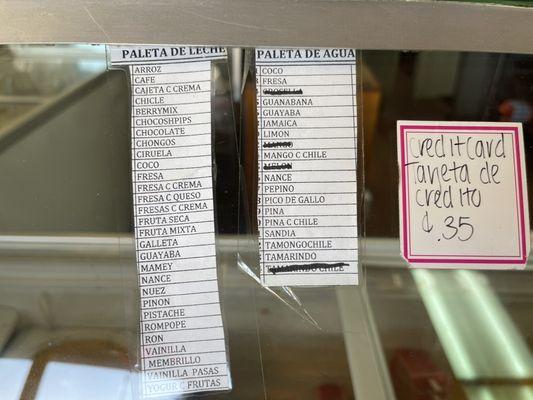 PALETA DE LECHE
ARROZ
CAFE
CAJETA C CREMA
CHICLE
BERRYMIX
CHOCOSHPIPS
CHOCOLATE
CHONGOS
CIRUELA
COCO
FRESA
FRESA C CREMA
FRESA C QUESO
FRESAS C CREMA
FRUTA SECA
FRUTA MIXTA
GALLETA
GUAYABA
MAMEY
NANCE
NUEZ
PINON
PISTACHE
ROMPOPE
RON
VAINILLA
MEMBRILLO
VAINILLA PASAS
YOGUR C FRUTAS
PALETA DE AGUA
COCO
FRESA
GROSELLA
GUANABANA
GUAYABA
JAMAICA
LIMON
MANGO
MANGO C CHILE
MELON
NANCE
PEPINO
PICO DE GALLO
PINA
PINA C CHILE
SANDIA
TAMONGOCHILE
TAMARINDO
TAMARINDO CHILE
credit card
Tarjeta de
credito
¢.35